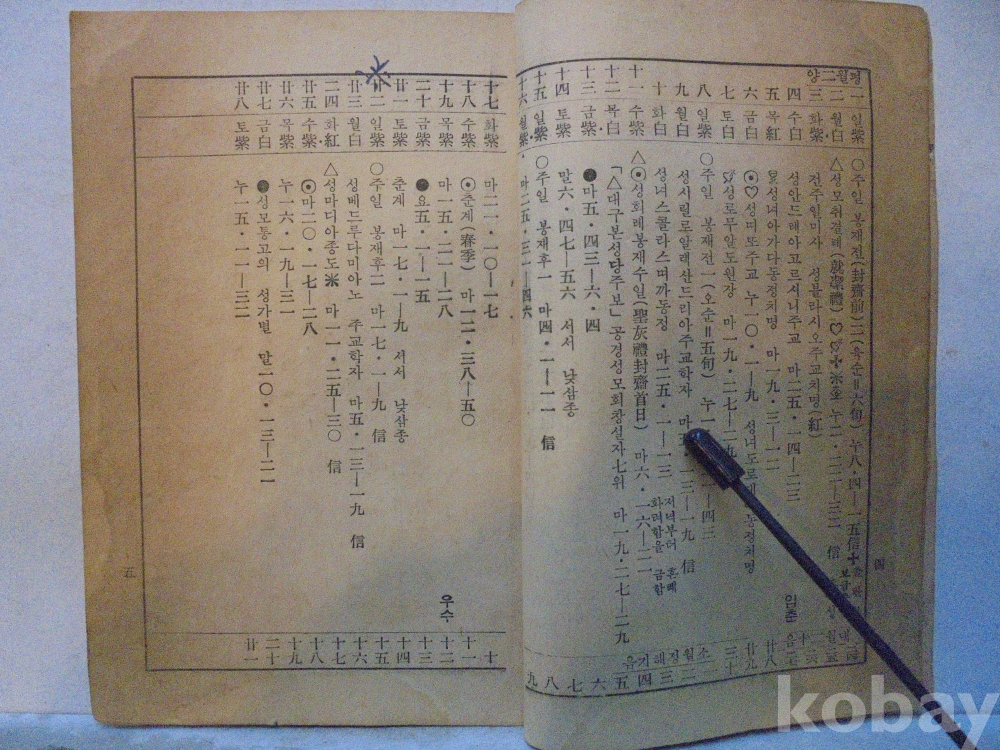 평월二양
一 일 紫 ○주일 봉재전(封齋前)二(육순=六旬) 누八·四—一五 信
二 월 白 △성모취결례(就潔禮)♡♡ 누二·二二—三二 信
三 화 紫 전주일미사 성블라시오주교치명(紅)
四 수 白 성안드레아고르시니주교 마二五·一四—二三 입춘
五 목 紅 성녀아가다동정치명 마一九·三—一二
六 금 白 성띠또주교 누一〇·一—九
七 토 白 성로무알도원장 마一九·二七—二九
八 일 紫 ○주일 봉재전一(오순=五旬)
九 월 白 성시릴로알렉산드리아주교학자 마五·一三—一九 信
十 화 白 성녀스콜라스띠까동정 마二五·一—一三
저녁부터 혼배
화려함을 금함
十一 수 紫 성회례봉재수일(聖灰禮封齋首日) 마六·一六—二一
十二 목 白 「△대구본성당주보」공경성모회창설자七위 마一九·二七—二九
十三 금 紫 마五·四三—六·四
十四 토 紫 말六·四七—五六 서서 낮삼종
十五 일 紫 ○주일 봉재후一 마四·一—一一 信
十六 월 紫 마二五·三一—四六
四
음 二 三 四 五 六 七 八 九
十七 화 紫 마二一·一〇—一七 十
十八 수 紫 춘계(春季) 마一二·三八—五〇 十一
十九 목 紫 마一五·二一—二八 우수 十二
二十 금 紫 요五·一—一五 十三
廿一 토 紫 춘계 마一七·一—九 서서 낮삼종 十四
廿二 일 紫 ○주일 봉재후二 마一七·一—九 信 十五
廿三 월 白 성베드루다미아노 주교학자 마五·一三—一九 信 十六
二四 화 紅 △성마디아종도 마一一·二五—三〇 信 十七
廿五 수 紫 마二〇·一七—二八 十八
廿六 목 紫 누一六·一九—三一 十九
廿七 금 白 성모통고의 성가별 말一〇·一三—二一 二十
廿八 토 紫 누一五·一一—三二 廿一
五
kobay